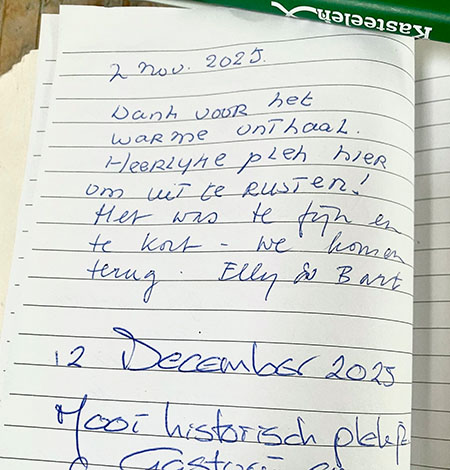 Kasteelen
2 nov. 2025.
Dank voor het
warme onthaal.
Heerlijke plek hier
om uit te rusten!
Het was te fijn en
te kort - we komen
terug. Elly & Bart
12 December 2025
Mooi historisch plekje
&